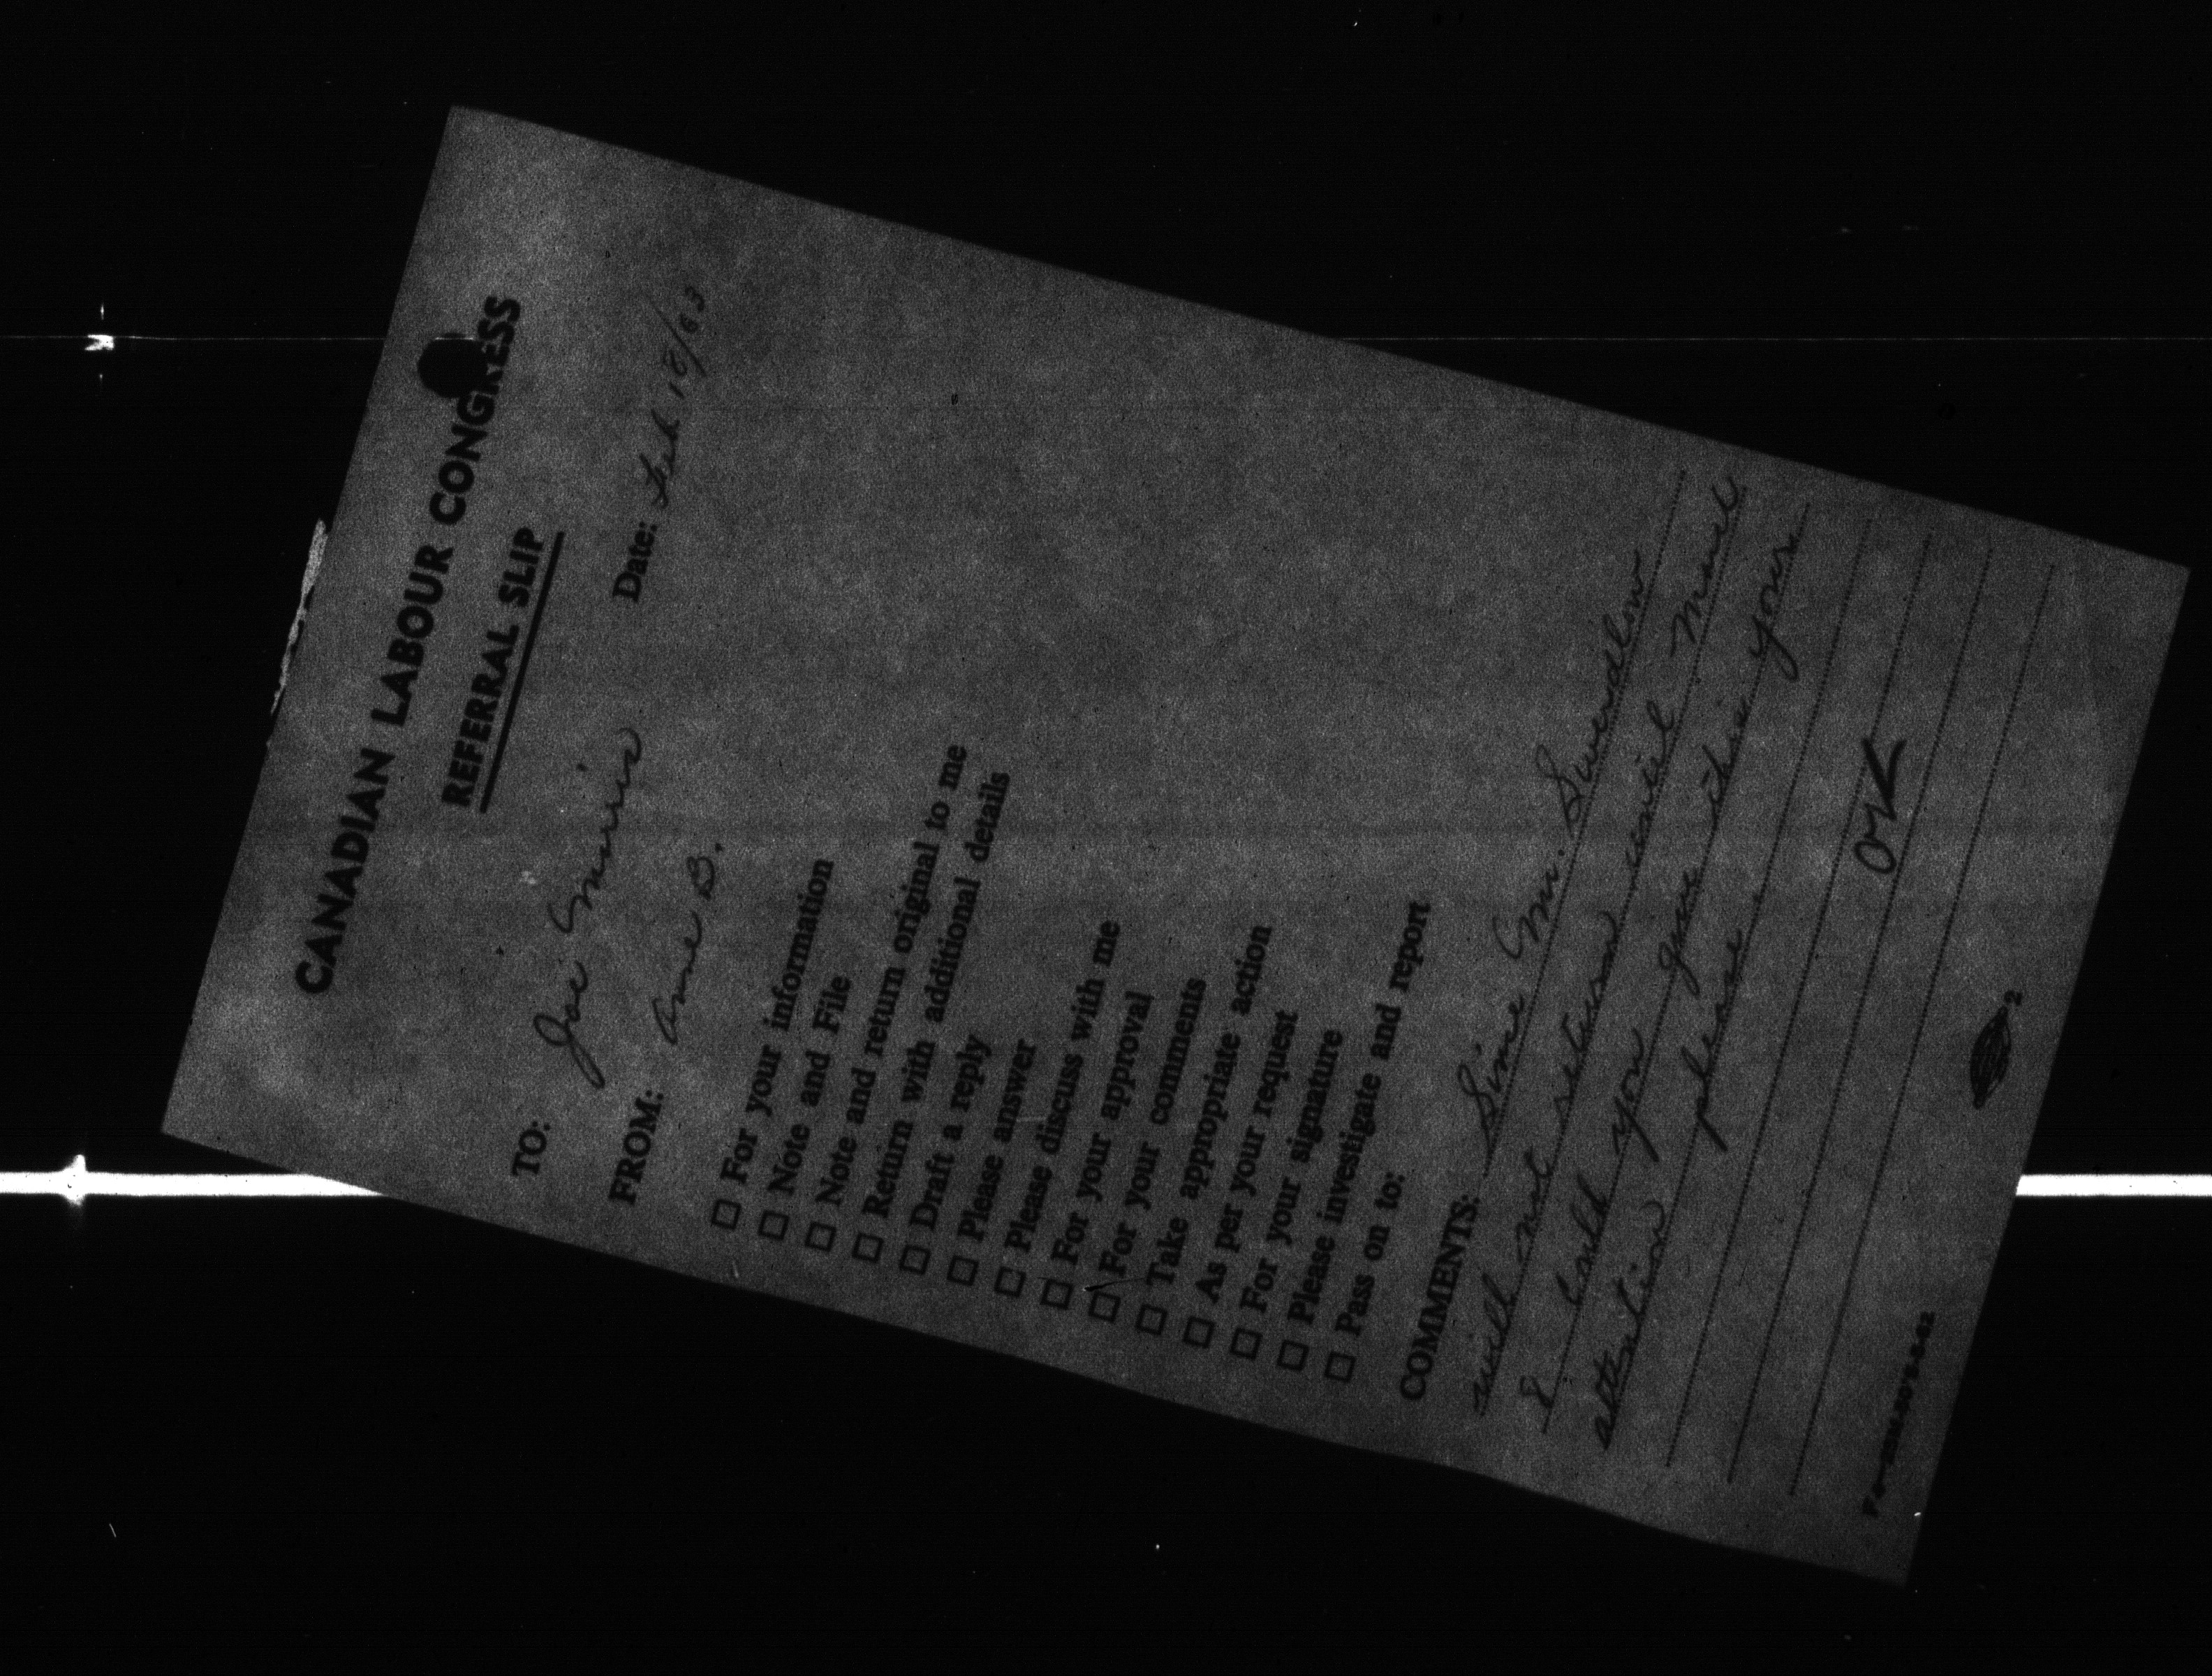 CANADIAN LABOUR CONGRESS
REFERRAL SLIP
Date: Feb 18/63
TO: Joe Morris
FROM: Anne B.
☐ For your information
☐ Note and File
☐ Note and return original to me
☐ Return with additional details
☐ Draft a reply
☐ Please answer
☐ Please discuss with me
☐ For your approval
☑ For your comments
☐ Take appropriate action
☐ As per your request
☐ For your signature
☐ Please investigate and report
☐ Pass on to:
COMMENTS: Since Mr. Swerdlow
will not return until March
8 could you give this your
attention please.
OK
2